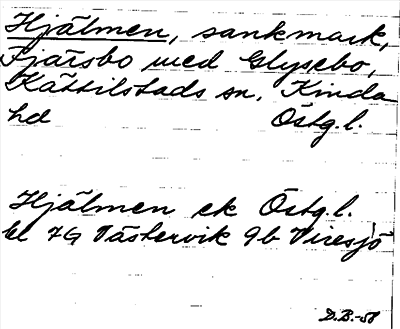 Hjälmen, sankmark,
Fjärsbo med Glysebo,
Kättilstads sn, Kinda
hd Östg.l.
Hjälmen ek Östg.l.
bl 7G Västervik 9b Viresjö
D.B.-58